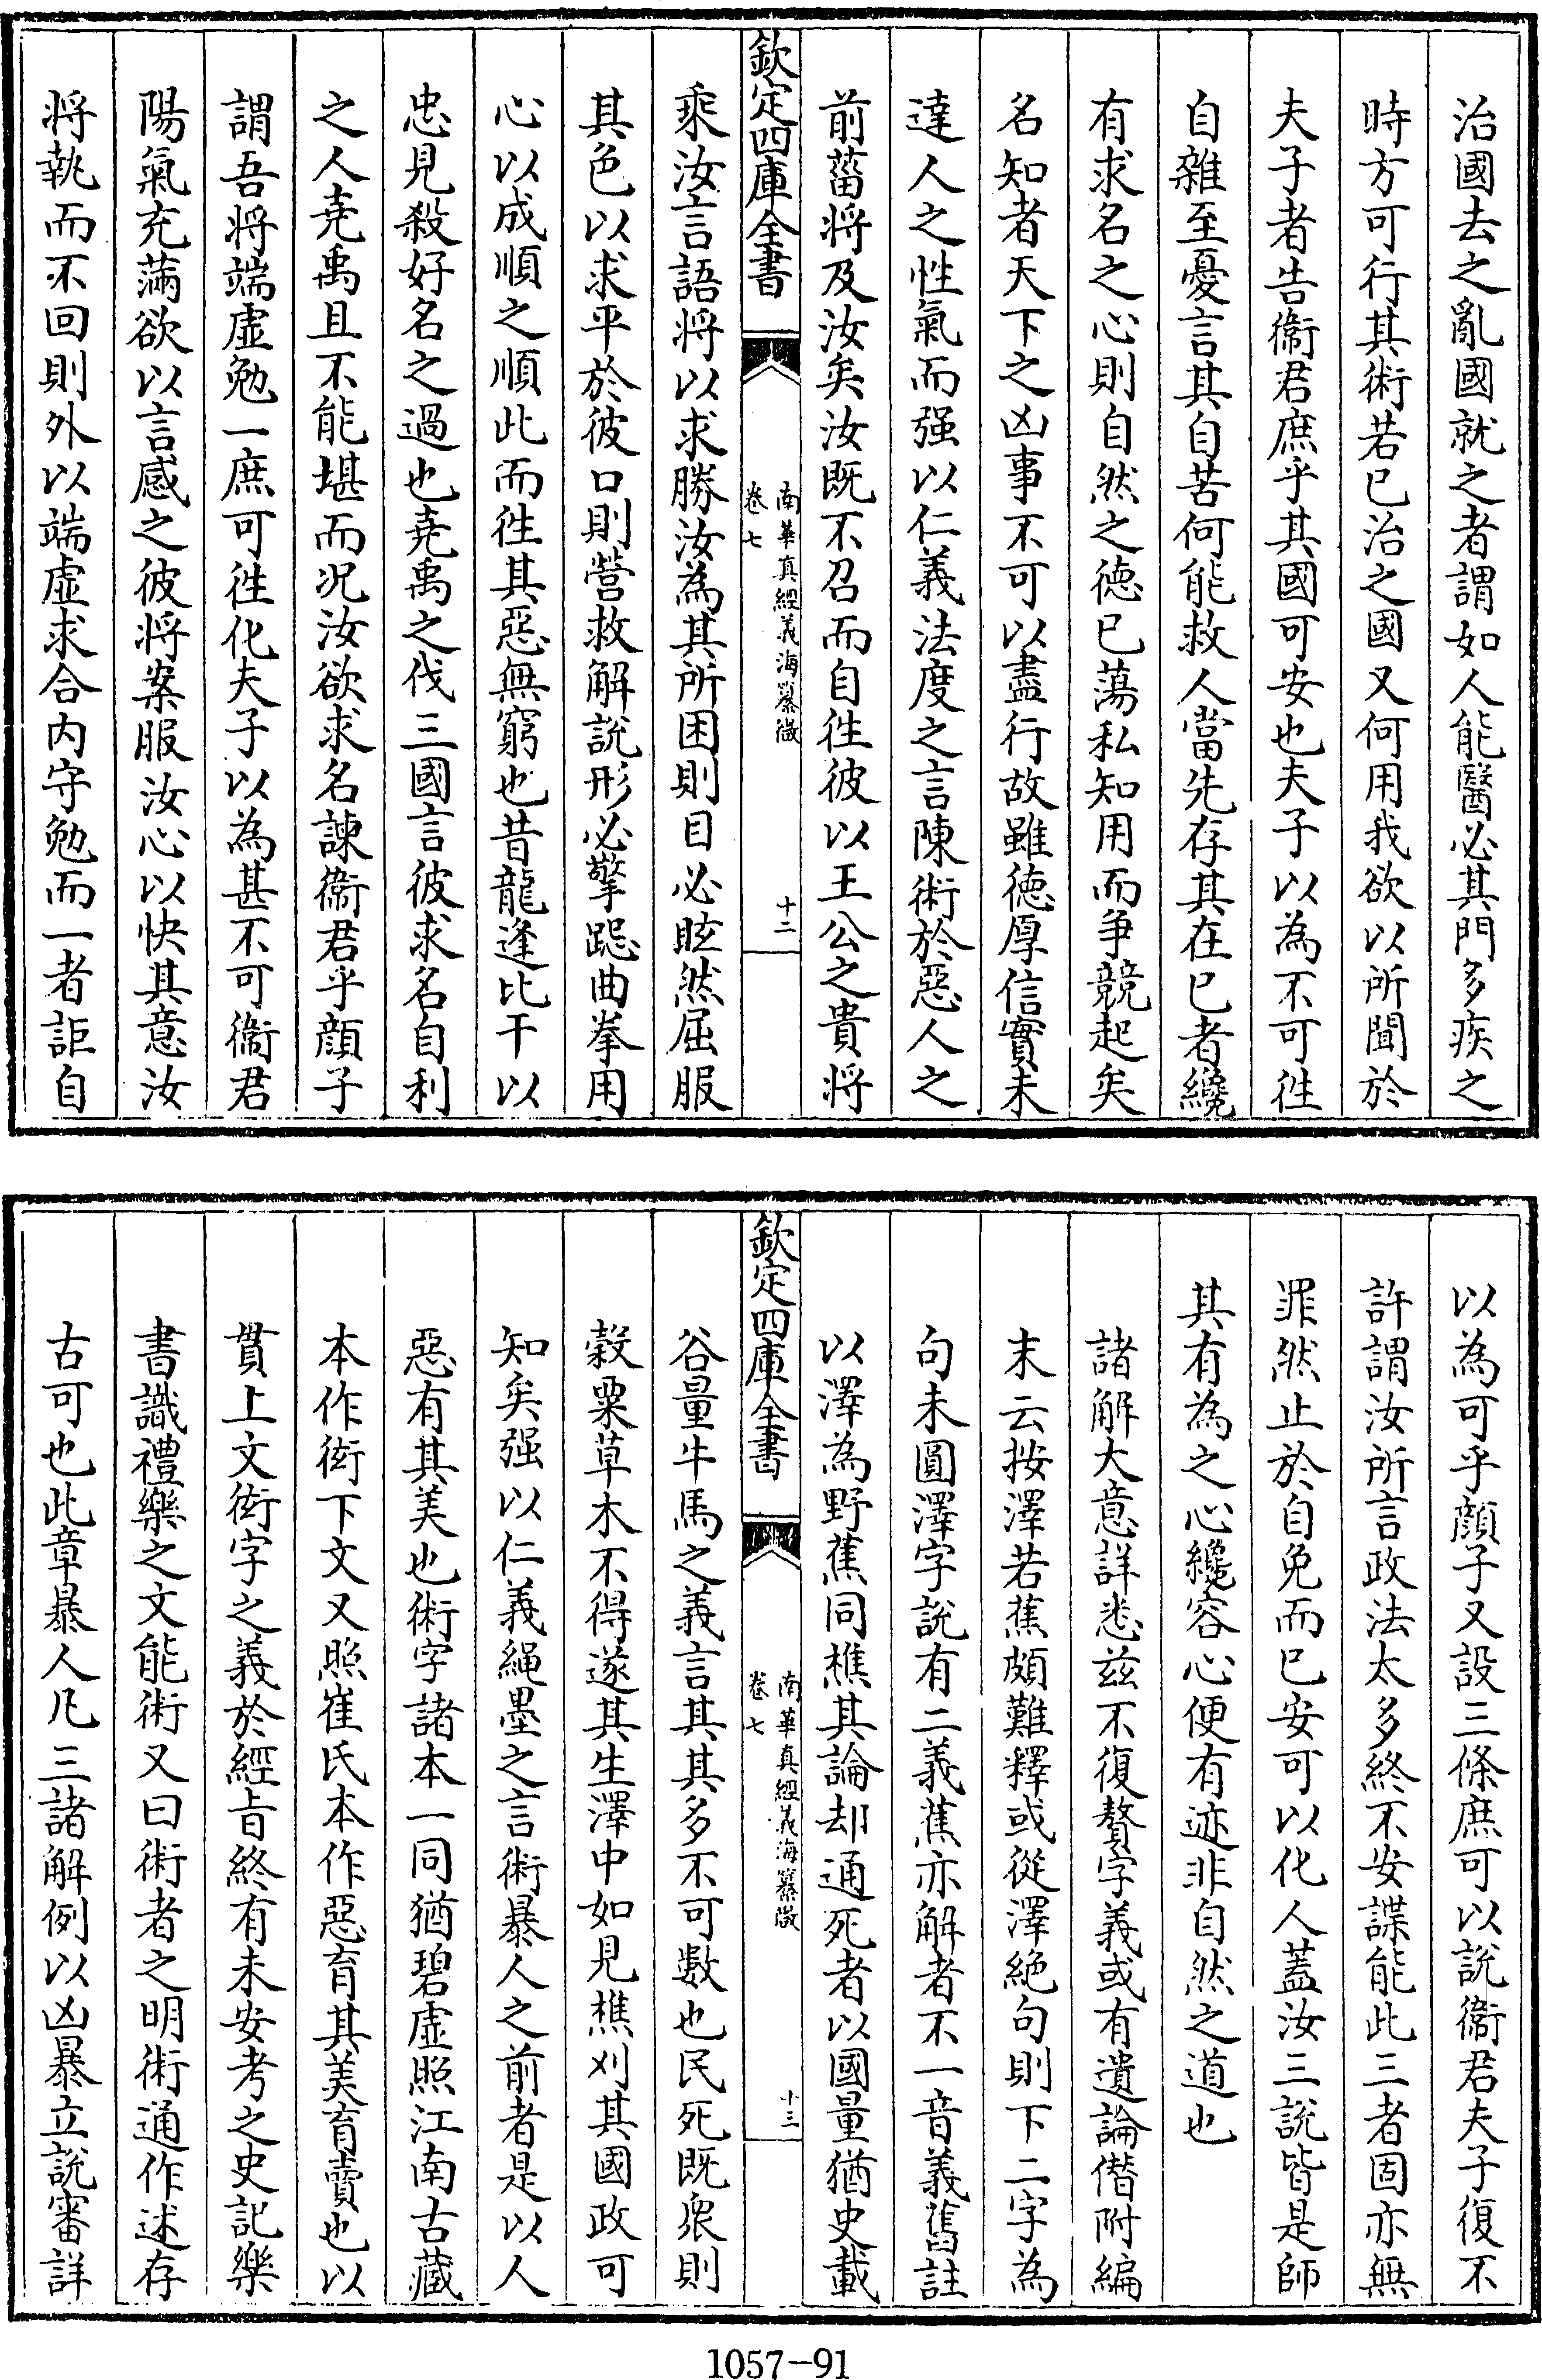 治國去之亂國就之者謂如人能醫必其門多疾之
時方可行其術若已治之國又何用我欲以所聞於
夫子者告衞君庶乎其國可安也夫子以為不可徃
自雜至憂言其自苦何能救人當先存其在已者纔
有求名之心則自然之德已蕩私知用而争競起矣
名知者天下之凶事不可以盡行故雖德厚信實未
達人之性氣而强以仁義法度之言陳術於惡人之
前菑将及汝矣汝既不召而自徃彼以王公之貴將
欽定四庫全書
南華真經義海纂微
卷七
十二
乘汝言語將以求勝汝為其所困則目必眩然屈服
其色以求平於彼口則營救解說形必擎跽曲拳用
心以成順之順此而徃其惡無窮也昔龍逢比干以
忠見殺好名之過也堯禹之伐三國言彼求名自利
之人堯禹且不能堪而况汝欲求名諫衞君乎顔子
謂吾將端虚勉一庶可徃化夫子以為甚不可衞君
陽氣充滿欲以言感之彼將案服汝心以快其意汝
將執而不回則外以端虚求合内守勉而一者詎自
以為可乎顔子又設三條庶可以說衞君夫子復不
許謂汝所言政法太多終不安諜能此三者固亦無
罪然止於自免而已安可以化人蓋汝三說皆是師
其有為之心纔容心便有迹非自然之道也
諸解大意詳悉兹不復贅字義或有遺論僭附編
末云按澤若蕉頗難釋或從澤絶句則下二字為
句未圓澤字說有二義蕉亦解者不一音義舊註
以澤為野蕉同樵其論却通死者以國量猶史載
欽定四庫全書
南華真經義海纂微
卷七
十三
谷量牛馬之義言其其多不可數也民死既衆則
榖粟草木不得遂其生澤中如見樵刈其國政可
知矣强以仁義繩墨之言術暴人之前者是以人
惡有其美也術字諸本一同猶碧虚照江南古藏
本作衒下文又照崔氏本作惡育其美育賣也以
貫上文衒字之義於經旨終有未安考之史記樂
書識禮樂之文能術又曰術者之明術通作述存
古可也此章暴人凡三諸解例以凶暴立說審詳
1057-91